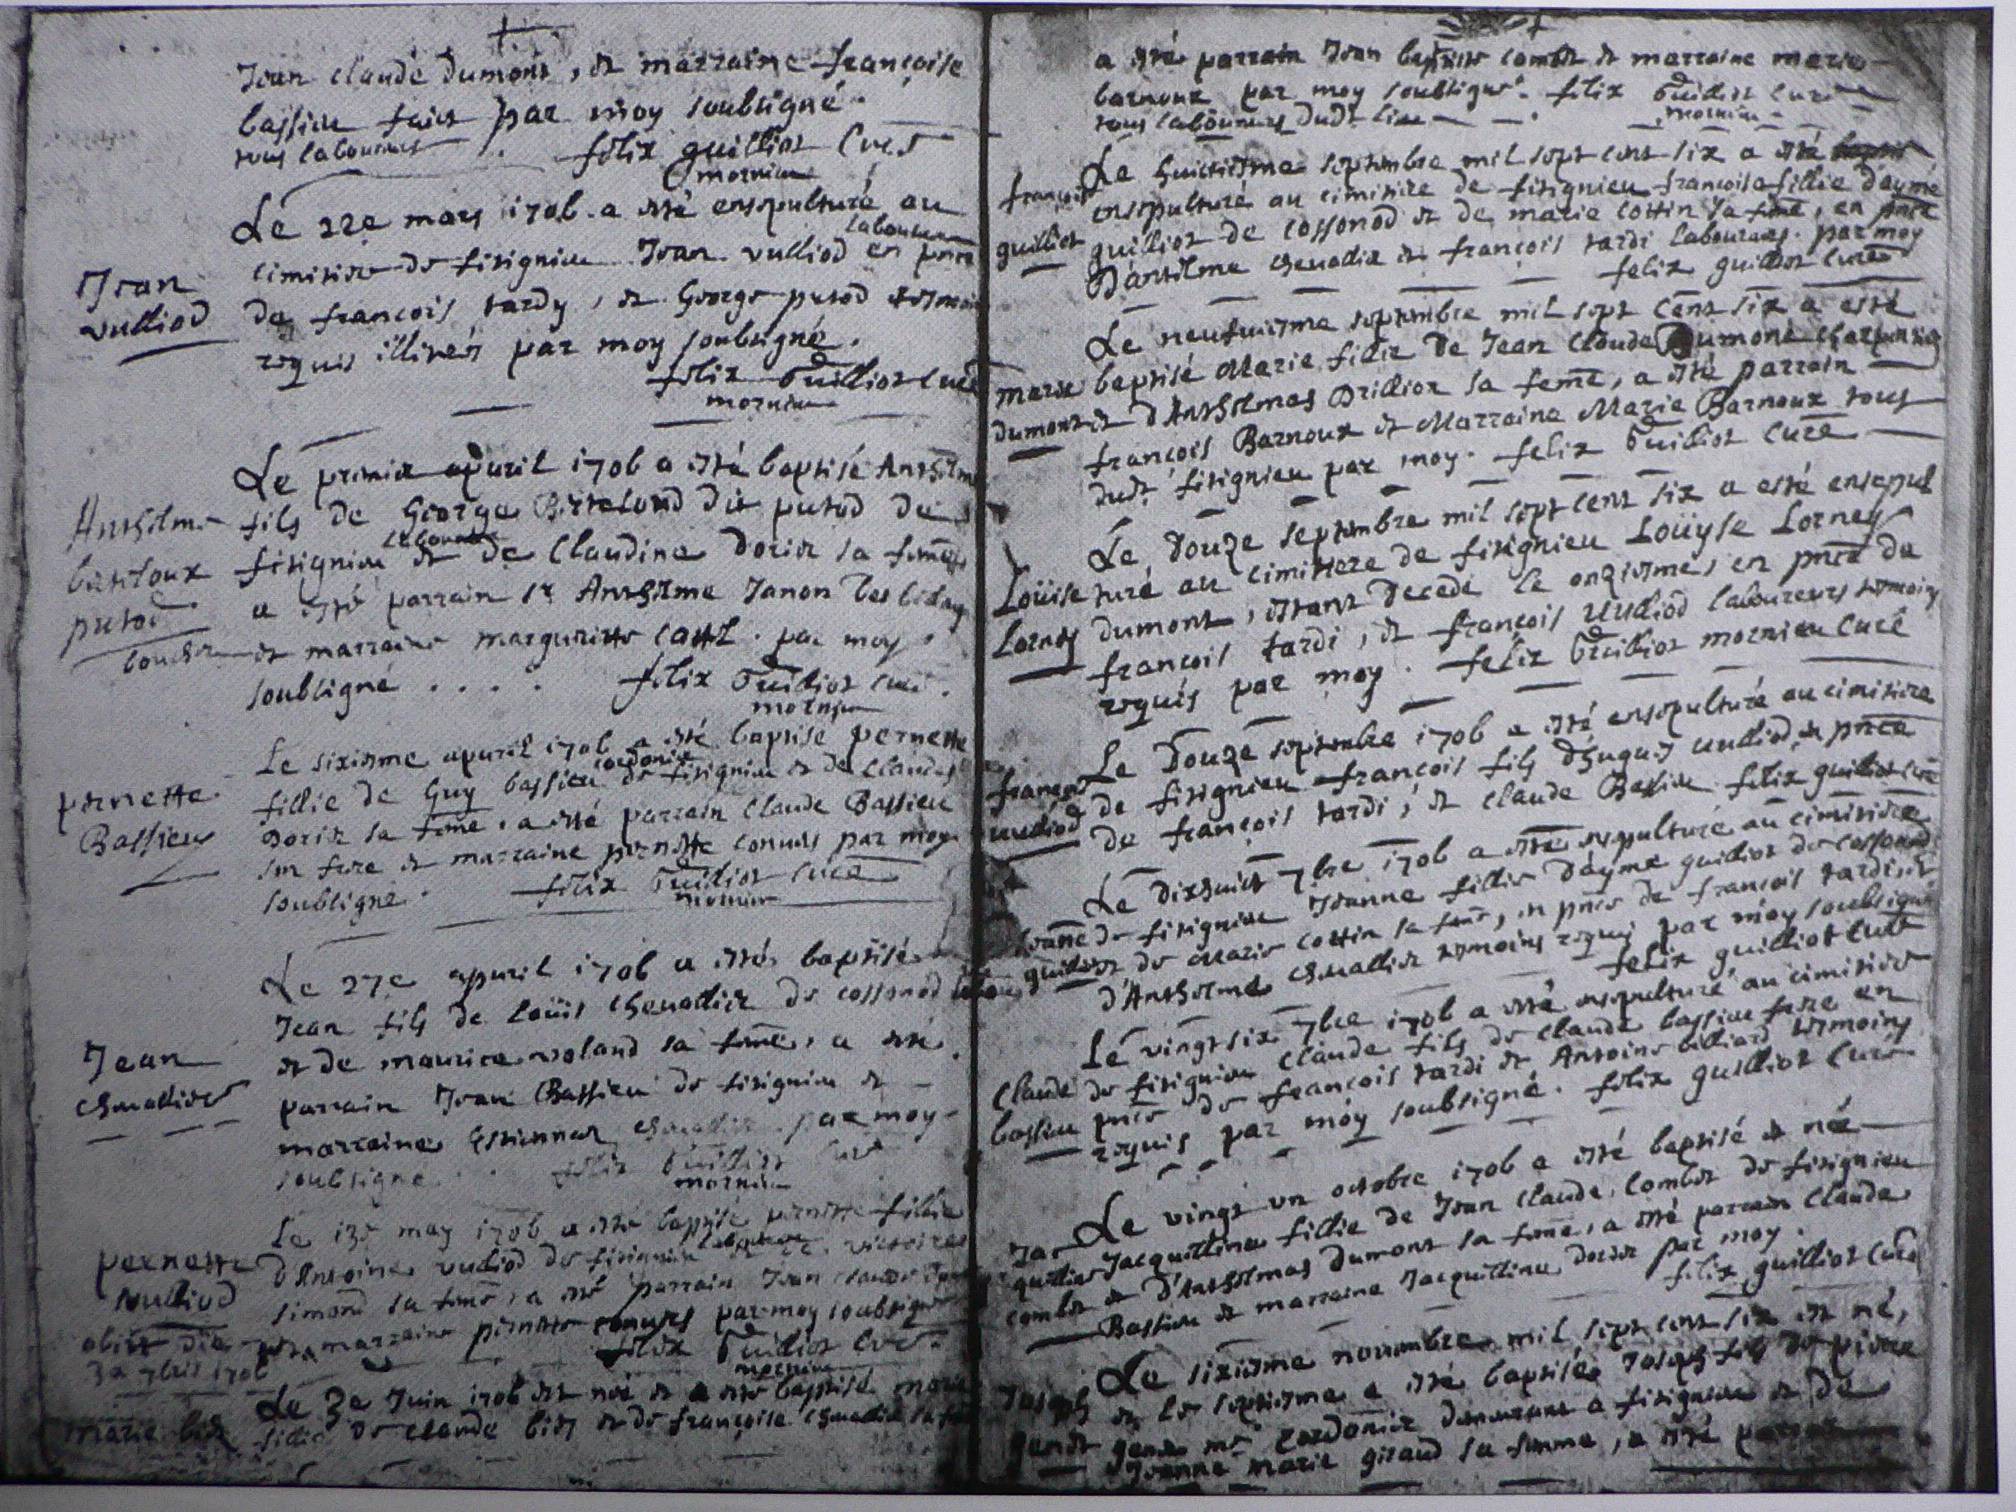 Jean claude dumont, et marraine françoise
bassieu faict par moy soubsigné.
tous laboureurs. felix guilliot Curé
mornieu
Le 22e mars 1706. a esté ensepulturé au
laboureur
cimitiere de fisignieu Jean vulliod en pnce
Jean
vulliod
de françois tardy, et George putod tesmoins
requis illiterés par moy soubsigné.
felix Guilliot curé
mornieu
Le premier apuril 1706 a esté baptisé Anthelme
Anthelme
fils de George dit putod de
laboureur
putod
fisignieu et de Claudine Dorier sa feme
a esté parrain sr Anthelme Janon
et marraine margueritte par moy
soubsigné . . . . felix Guilliot curé.
mornieu
Le sixiesme apuril 1706 a esté baptisé pernette
cordonier
pernette
Bassieu
fillie de Guy bassieu de fisignieu et de Claudine
Dorier sa feme, a esté parrain Claude Bassieu
son frere et marraine pernette conuers par moy
soubsigné. felix Guilliot Curé
mornieu
Le 27e apuril 1706 a esté baptisé
Jean fils de Louis Cheuallier de cossonod
Jean
cheuallier
et de maurice roland sa feme, a esté
parrain Jean Bassieu de fisignieu et
marraine Estiennaz cheuallier par moy
soubsigné. felix Guilliot Curé
mornieu
Le 13e may 1706 a esté baptisé pernette fillie
laboureur
pernette
vulliod
d'Antoine vulliod de fisignieu et de victoire
simond sa feme, a esté parrain Jean claude
et marraine pernette conuers par moy soubsigné
obiit die
3a 7bris 1706
felix Guilliot Curé.
mornieu
Le 3e Juin 1706 est née et a esté baptisé marie
marie
fillie de claude et de françoise cheuallier sa feme
a esté parrain Jean baptiste combet et marraine marie
barnoux par moy soubsigné. felix Guilliot Curé
tous laboureurs dudt lieu mornieu
Le huictiesme septembre mil sept cent six a esté
françoise
guilliot
ensepulturé au cimitiere de fisignieu françoise fillie d'aymé
guilliot de cossonod et de marie cottin sa feme, en pnce
D'anthelme cheuallier et françois tardi laboureurs. par moy
felix guilliot Curé
Le neufuiesme septembre mil sept cent six a esté
marie
dumont
baptisé Marie fillie de Jean Claude Dumont charpentier
et d'Anthelmaz Drillior sa feme, a esté parrain
françois Barnoux et Marraine Marie Barnoux tous
dudt fisignieu par moy. felix Guilliot Curé
Le douze septembre mil sept cent six a esté ensepul
Loüise
Lorney
turé au cimittiere de fisignieu Loüyse Lorney
dumont, estant decedé le onziesme, en pnce de
françois tardi, et françois vulliod laboureurs tesmoins
requis par moy. felix Guilliot mornieu Curé
Le Douze septembre 1706 a esté ensepulturé au cimitiere
françois
vulliod
de fisignieu françois fils d'huguet vulliod, en pnce
de françois tardi, et claude Bassieu felix guilliot curé
Le dixhuict 7bre 1706 a esté ensepulturé au cimitiere
Jeanne
guilliot
de fisignieu Jeanne fillie d'aymé guilliot de cossonod
et de Marie cottin sa feme, en pnce de françois tardi, et
d'Anthelme cheuallier tesmoins requis par moy soubsigné
felix guilliot Curé
Le vingt six 7bre 1706 a esté ensepulturé au cimitiere
Claude
bassieu
de fisignieu Claude fils de Claude bassieu en
pnce de françois tardi et Antoine billiard tesmoins
requis par moy soubsigné. felix guilliot Curé.
Le vingt un octobre 1706 a esté baptisé et née
Jac
quilline
combet
Jacquilline fillie de Jean Claude Combet de fisignieu
et d'Anthelmaz Dumont sa feme, a esté parrain Claude
Bassieu et marraine Jacquilline dorier par moy.
felix guilliot Curé
Le sixiesme nouembre mil sept cent six est né,
Joseph
et le septiesme a esté baptisé Joseph fils de pierre
cordonier demeurant a fisignieu et de
Jeanne marie giraud sa femme, a esté parrain